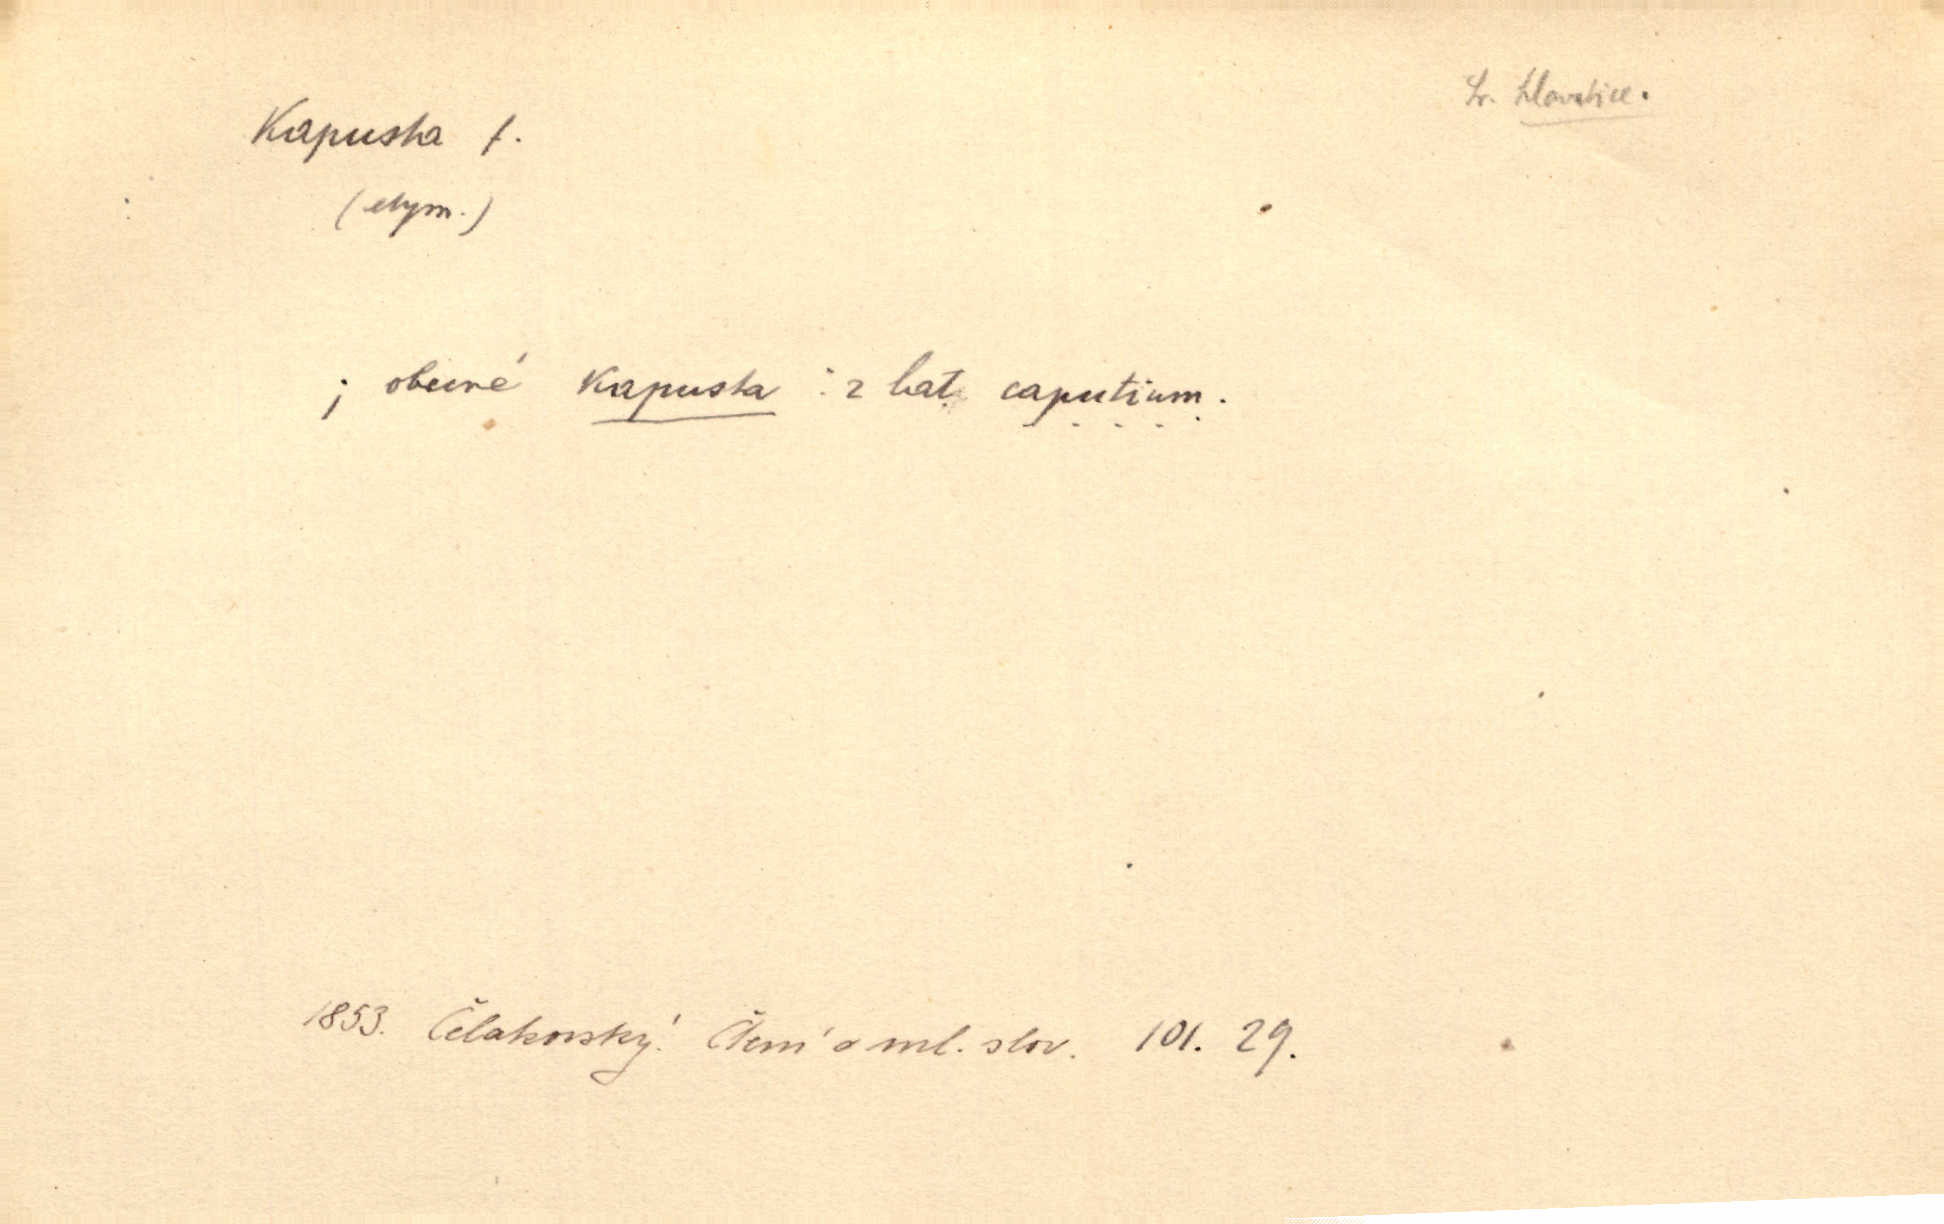 Sr. hlavatice.
Kapusta f.
(etym.)
; obecné kapusta : z lat. caputium.
1853. Čelakovský: Čtení o ml. slov. 101. 29.